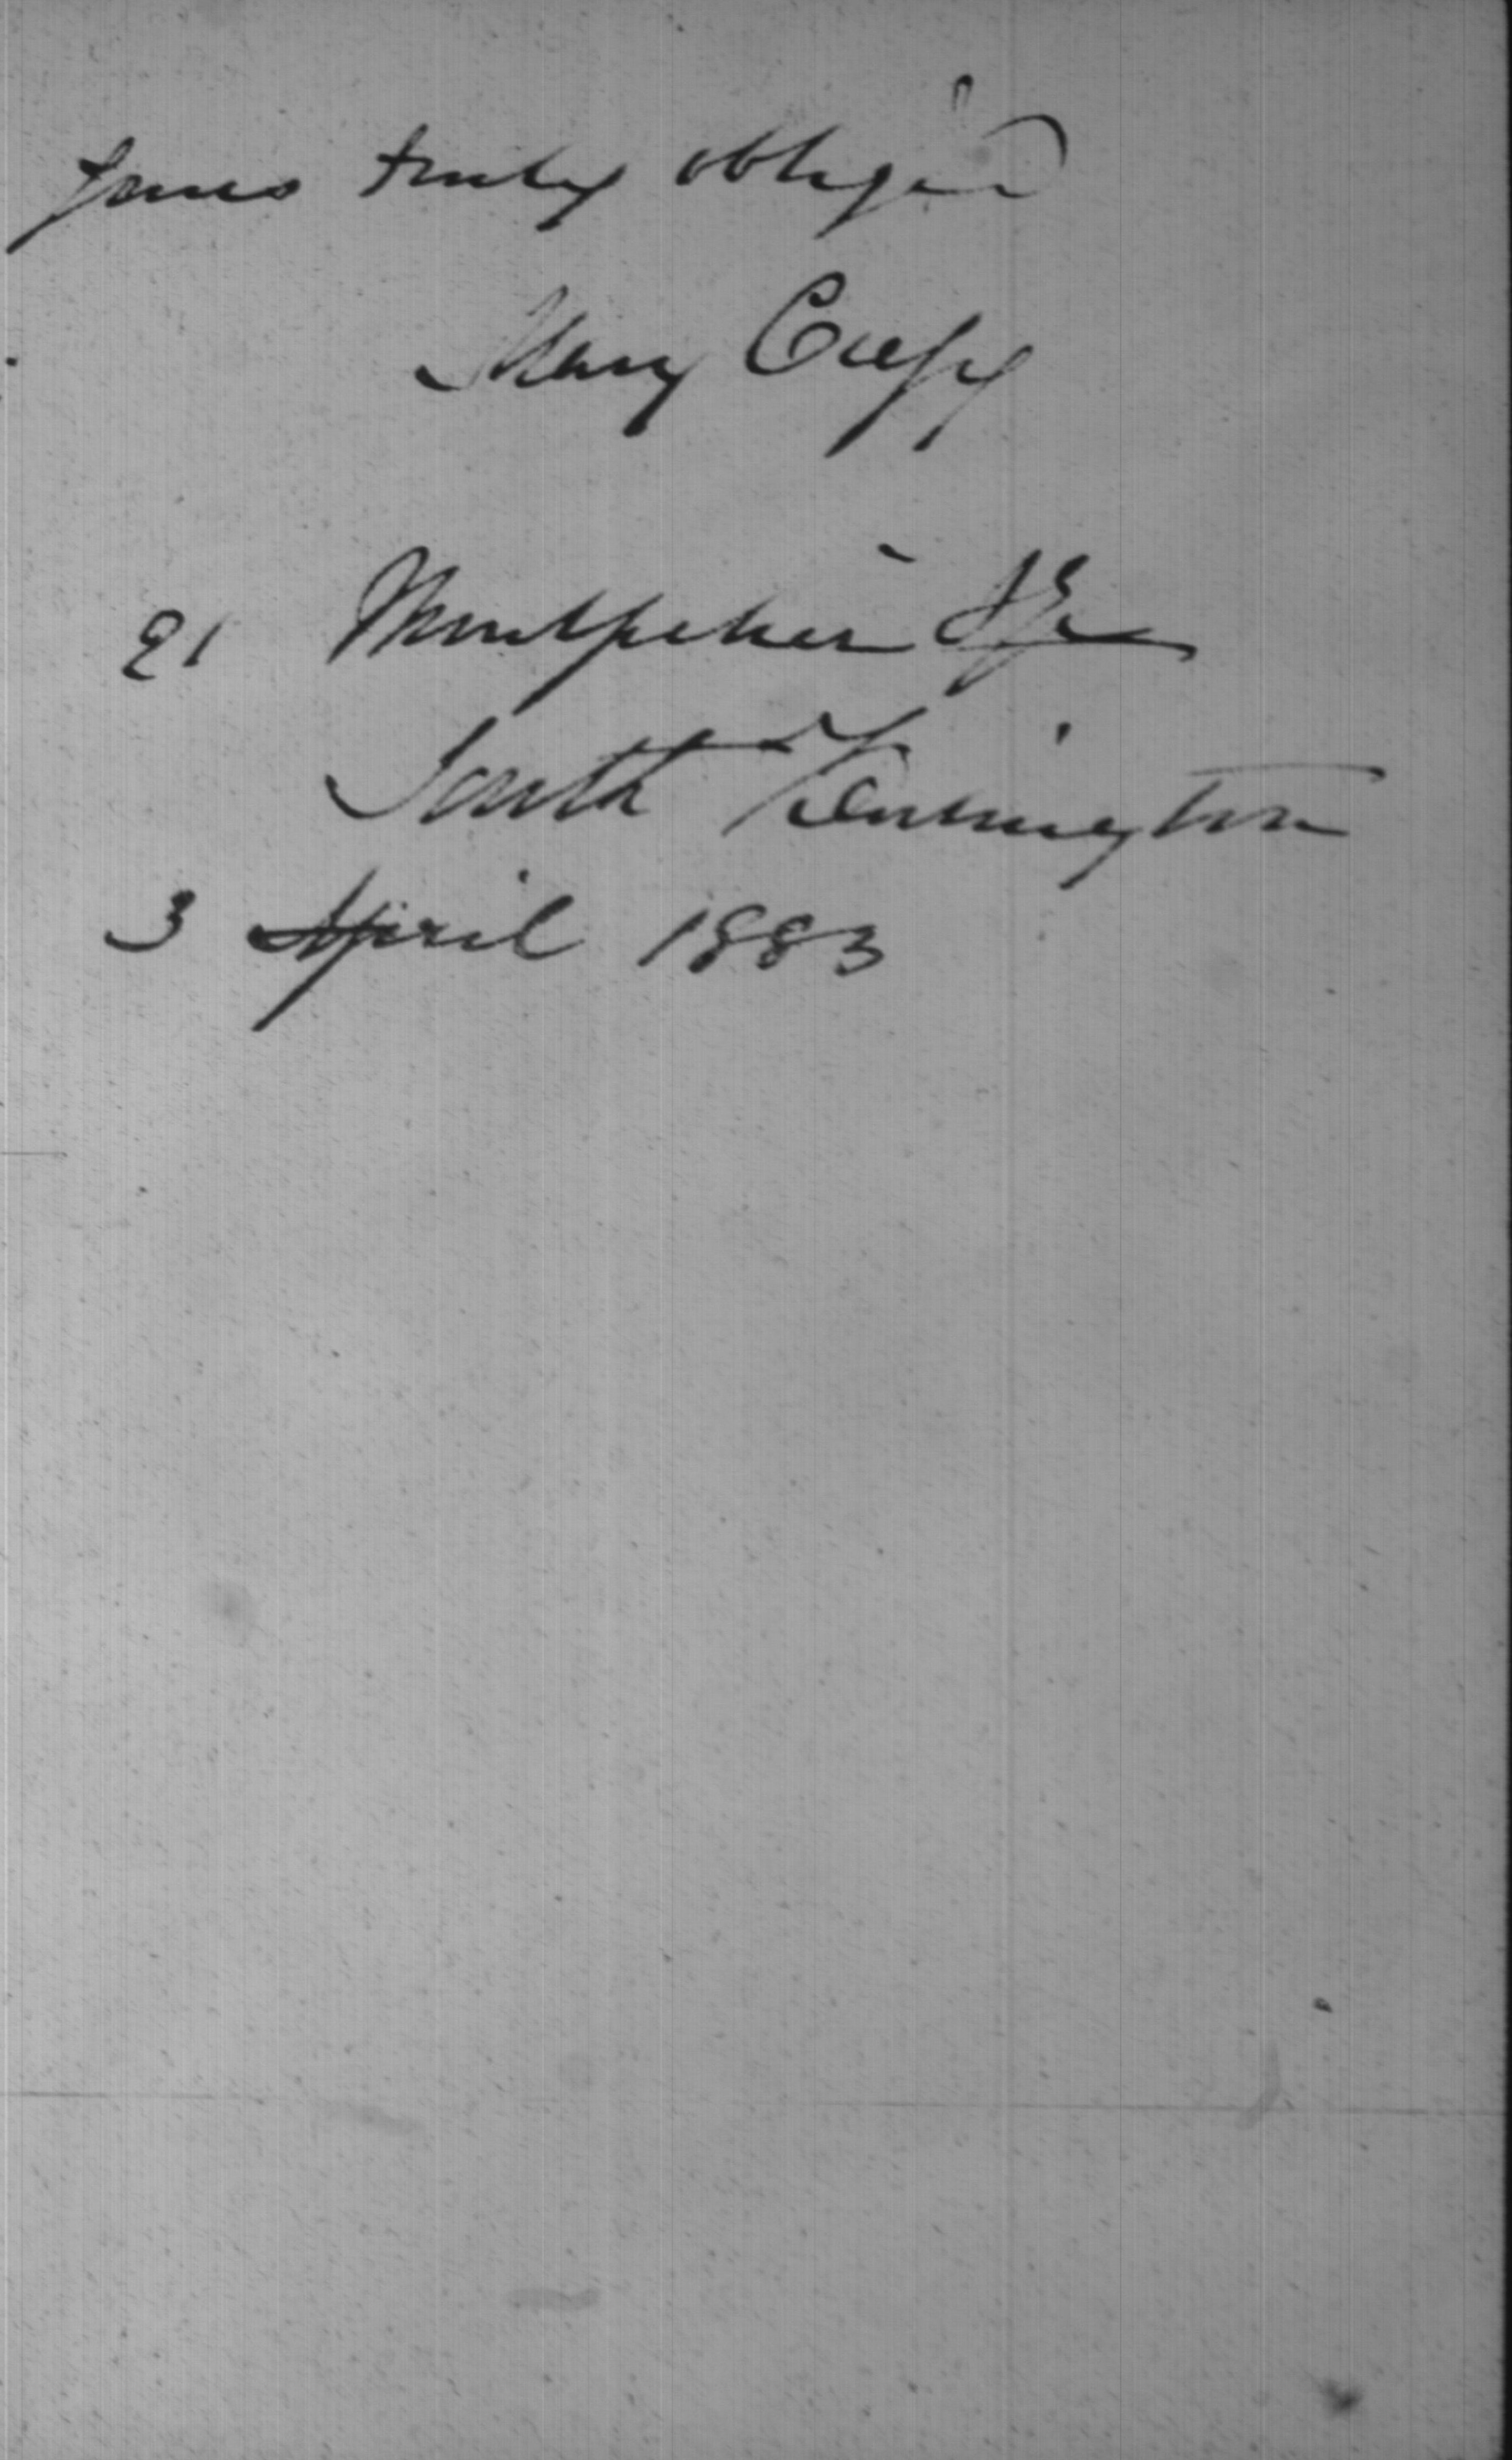 Yours truly obliged
Mary Creasy
21 Montpelier Sqre
South Kensington
3 April 1883